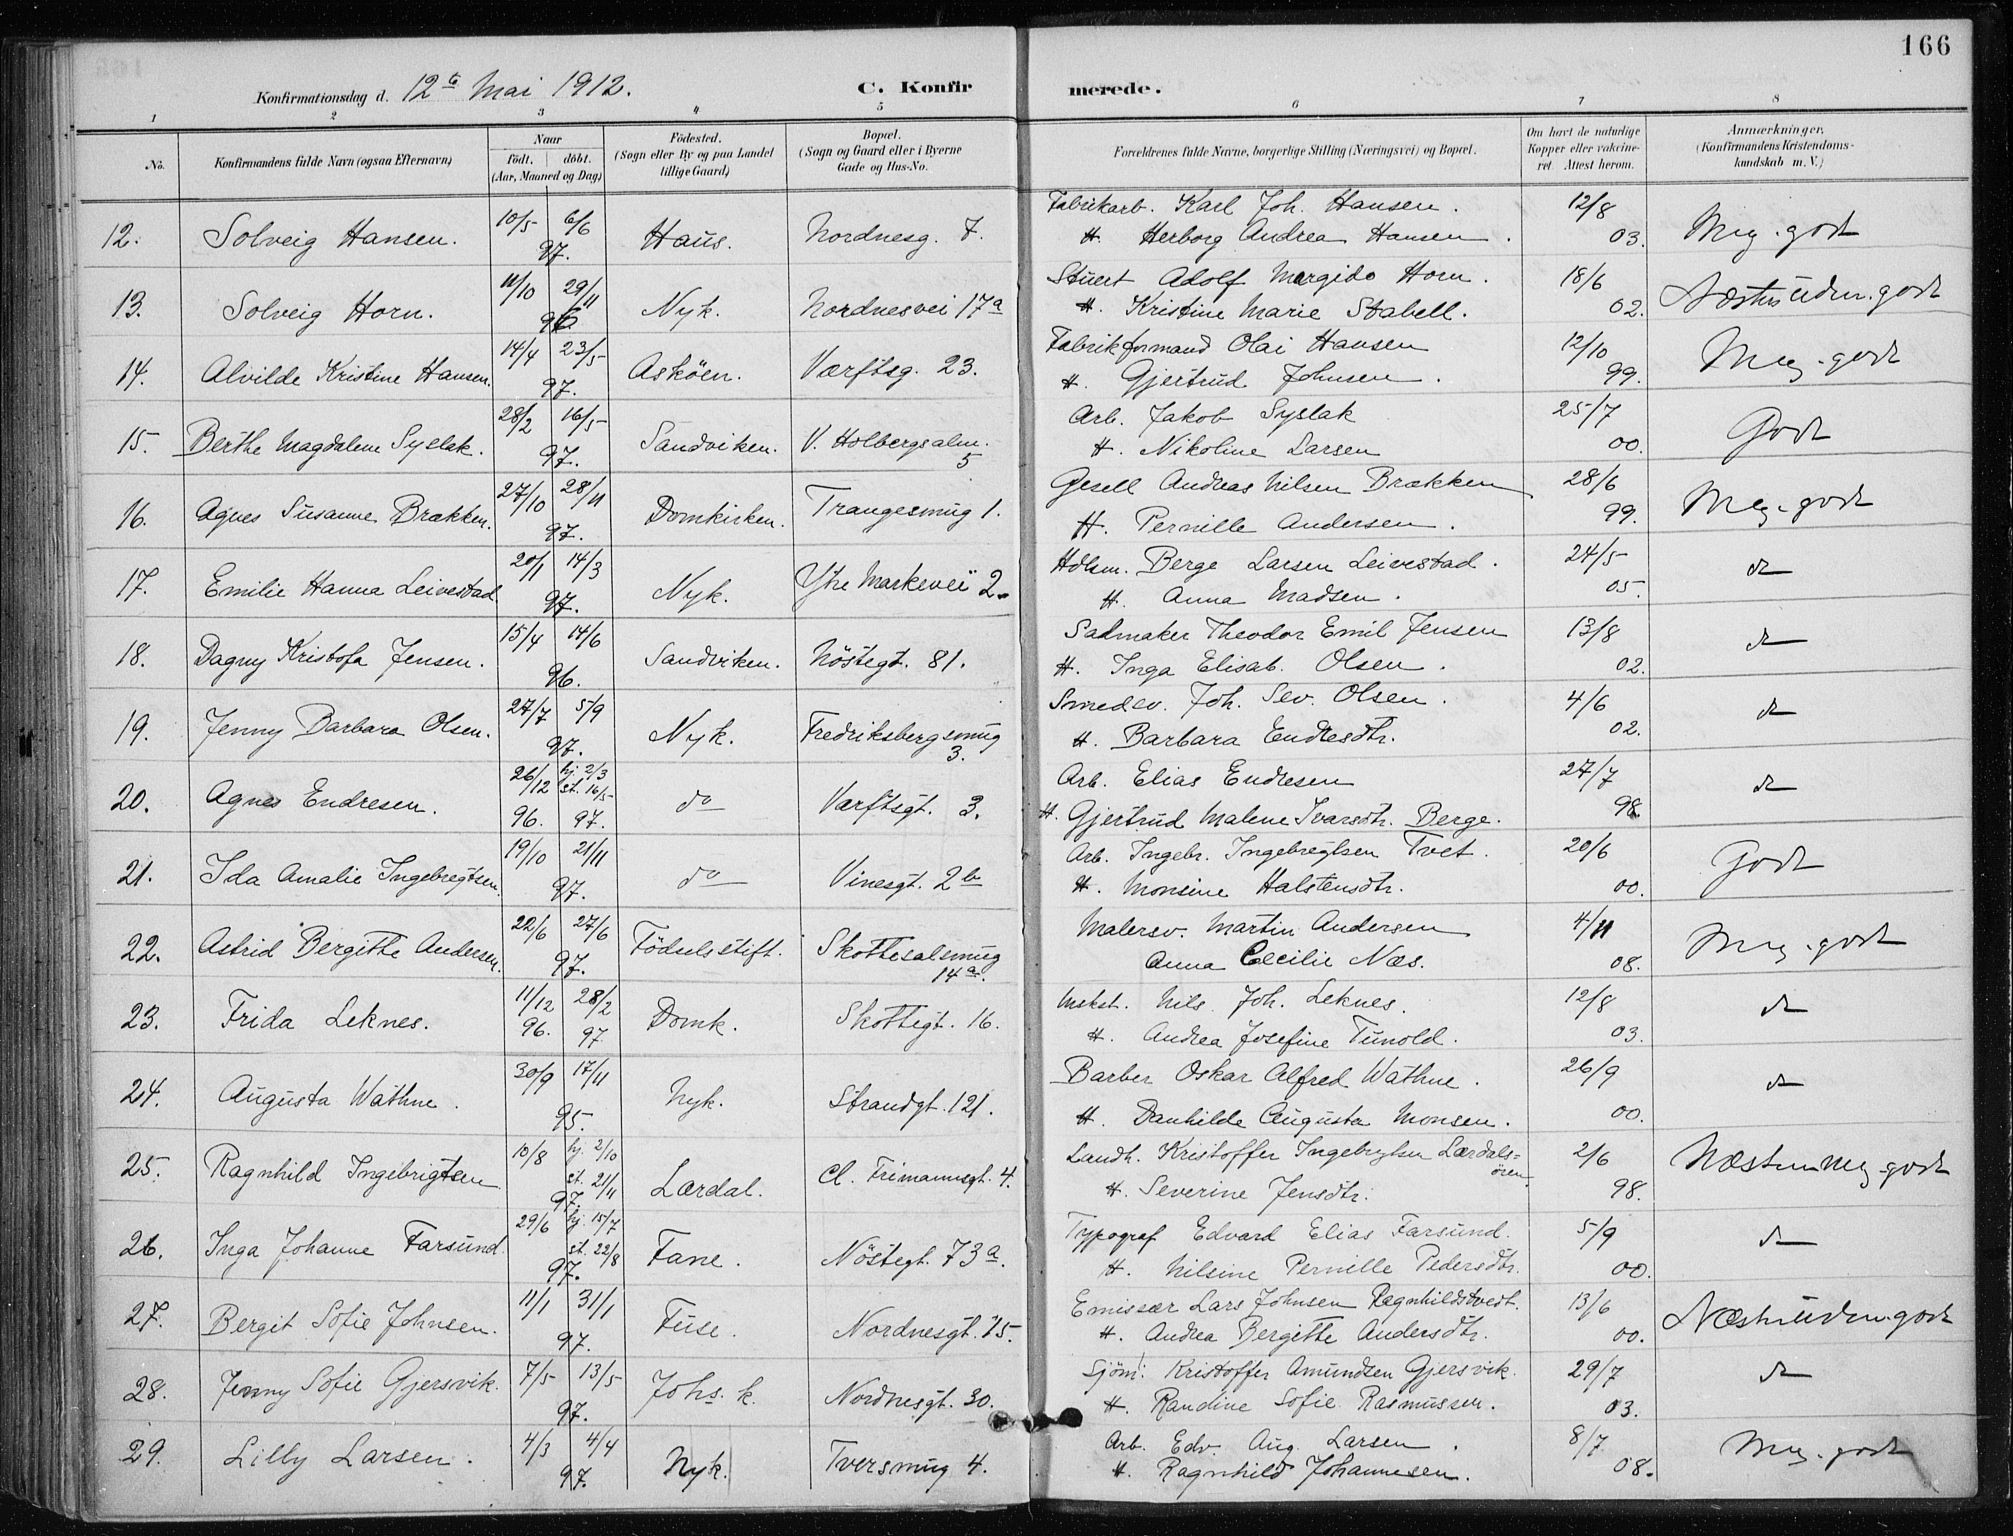 166
Konfirmationsdag d. 12te Mai 1912. C. Konfirmerede.
1 2 3 4 5 6 7 8
No. Konfirmandens fulde Navn (ogsaa Efternavn) Naar födt. döbt. (Aar, Maaned og Dag) Födested. (Sogn eller By og paa Landet tillige Gaard) Bopæl. (Sogn og Gaard eller i Byerne Gade og Hus-No. Forældrenes fulde Navne, borgerlige Stilling (Næringsvei) og Bopæl. Om havt de naturlige Kopper eller vaccineret Attest herom. Anmærkninger. (Konfirmandens Kristendomskundskab m. V.)
12. Solveig Hansen. 10/5 6/6 97. Haus. Nordnesg. 7. Fabrikarb. Karl Joh. Hansen. 12/8 Meg. godt
H. Herborg Andrea Hansen. 03.
13. Solveig Horn. 11/10 29/11 96 Nyk. Nordnesvei 17a Stuert Adolf Margido Horn. 18/6 Næsten uden. godt
H. Kristine Marie Stabell. 02.
14. Alvilde Kristine Hansen. 14/4 23/5 97. Asköen. Værftsg. 23. Fabrikformand Olai Hansen 12/10 Meg. godt
H. Gjertrud Johnsen. 99.
15. Berthe Magdalene Syslak. 28/2 16/5 97. Sandviken. V. Holbergsalm. 5 Arb. Jakob Syslak 25/7 Godt
H. Nikoline Larsen 00.
16. Agnes Susanne Brækken. 27/10 28/11 97. Domkirken. Trangesmug 1. Gesell Andreas Nilsen Brækken 28/6 Meg. godt
H. Pernille Andersen. 99.
17. Emilie Hanna Leivestad 20/1 14/3 97. Nyk. Ytre Markevei 2. Hdlsm. Berge Larsen Leivestad. 24/5 do
H. Anna Madsen. 05.
18. Dagny Kristofa Jensen. 15/4 14/6 96. Sandviken. Nöstegt. 81. Sadmaker Theodor Emil Jensen 13/8 do
H. Inga Elisab. Olsen. 02.
19. Jenny Barbara Olsen. 27/7 5/9 97. Nyk. Fredriksbergsmug 3. Smedsv. Joh. Sev. Olsen. 4/6 do
H. Barbara Endresdtr. 02.
20. Agnes Endresen. 26/12 96. hj. 2/3 st. 16/5 97. do Værftsgt. 3. Arb. Elias Endresen 27/7 do
H. Gjertrud Malene Ivarsdtr. Berge. 98
21. Ida Amalie Ingebregtsen. 19/10 21/11 97. do Vinesgt. 2b Arb. Ingebr. Ingebregtsen Tvet. 20/6 Godt
H. Monsine Halstensdtr. 00.
22. Astrid Bergitte Andersen. 22/6 27/6 97. Födselsstift. Skottesalsmug 14a. Malersv. Martin Andersen 4/11 Meg. godt
Anna Cecilie Næs. 08.
23. Frida Leknes. 11/12 96. 28/2 97 Domk. Skottegt. 16. Mskst. Nils Joh. Leknes. 12/8 do
H. Andrea Josefine Tunold. 03.
24. Augusta Wathne. 30/9 17/11 95. Nyk. Strandgt. 121. Barber Oskar Alfred Wathne. 26/9 do
H. Danhilde Augusta Monsen. 00.
25. Ragnhild Ingebrigtsen 10/8 hj. 2/10 st. 21/11 97. Lærdal. Cl. Frimannsgt. 4. Landh. Kristoffer Ingebrigtsen Lærdalsören. 2/6 Næsten meg. godt
H. Severine Jensdtr. 98.
26. Inga Johanne Farsund. 29/6 hj. 15/7 st. 22/8 97. Fane. Nöstegt. 73a. Typograf Edvard Elias Farsund. 5/9 do
H. Nilsine Pernille Pedersdtr. 00.
27. Bergit Sofie Johnsen. 11/1 31/1 97. Fuse. Nordnesgt. 15. Emissær Lars Johnsen Ragnhildstvedt. 13/6 Næsten uden. godt
H. Andrea Bergitte Andersdtr. 00.
28. Jenny Sofie Gjersvik. 7/5 13/5 97. Johs. k. Nordnesgt. 30. Sjöm. Kristoffer Amundsen Gjersvik. 29/7 do
H. Randine Sofie Rasmussen. 03.
29. Lilly Larsen. 4/3 4/4 97. Nyk. Tversmug 4. Arb. Edv. Aug. Larsen. 8/7 Meg. godt
H. Ragnhild Johannesen. 08.